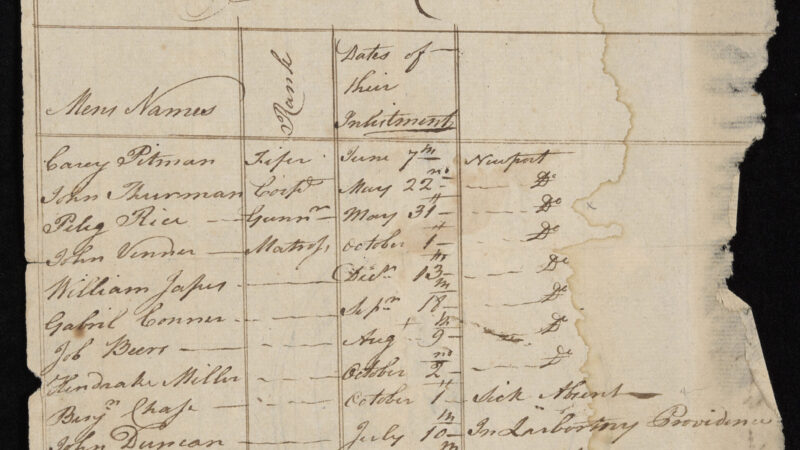 Mens Names Rank Dates of
their
Inlistment
Carey Pitman Fifer June 7th Newport
John Thurman Corpl May 22nd Do
Peleg Rice Gunnr May 31st Do
John Venner Matross October 1st Do
William Japes Decr 13th Do
Gabril Conner Sepr 18th Do
Job Beers Aug 9th Do
Hendrake Miller October 2nd Do
Benjn Chase October 1st Sick Absent
John Duncan July 10th In Providence